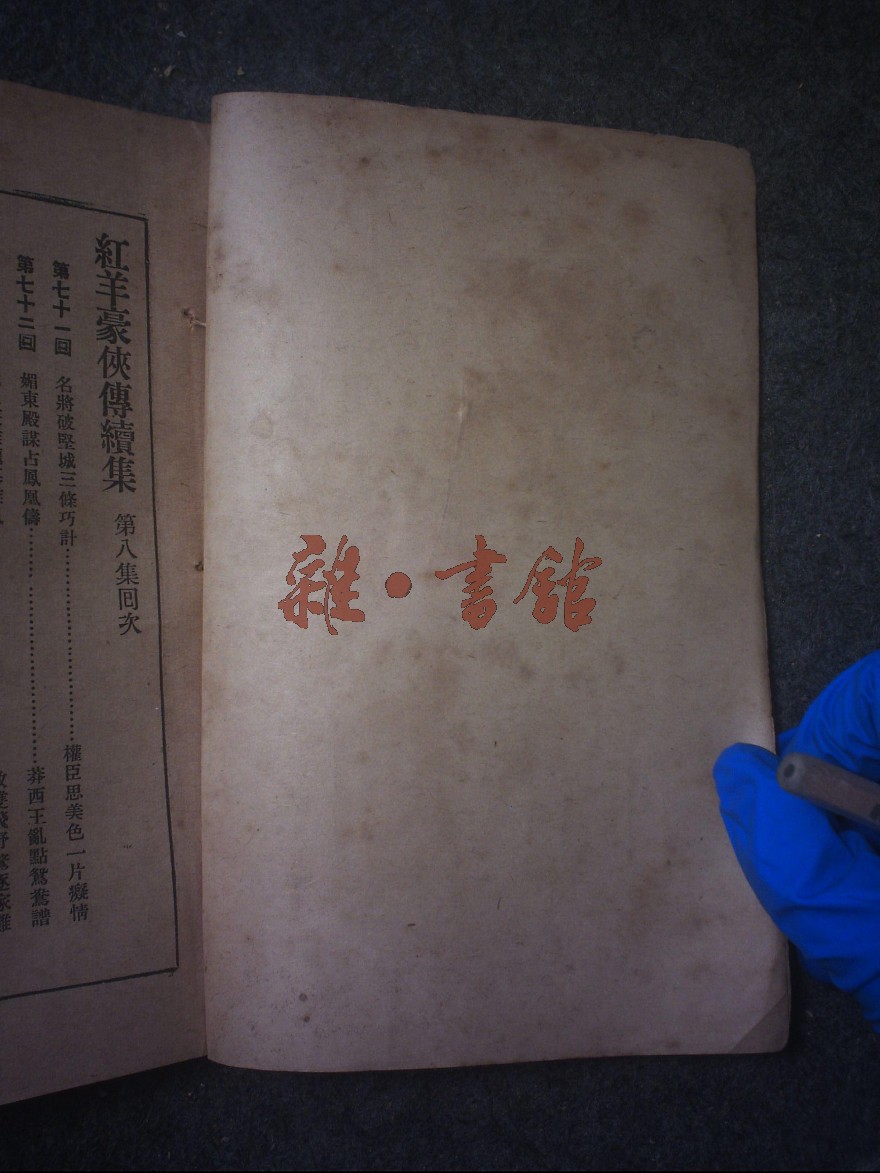 紅羊豪俠傳續集 第八集回次
第七十一回 名將破堅城三條巧計……………………權臣思美色一片癡情
第七十二回 媚東殿謀占鳳凰儔……………………莽西王亂點鴛鴦譜
雜·書館